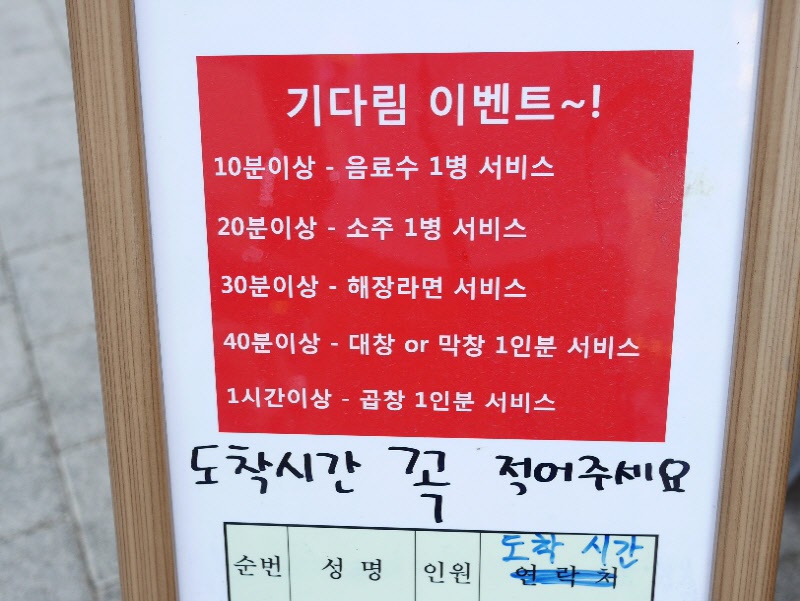 기다림 이벤트~!
10분이상 - 음료수 1병 서비스
20분이상 - 소주 1병 서비스
30분이상 - 해장라면 서비스
40분이상 - 대창 or 막창 1인분 서비스
1시간이상 - 곱창 1인분 서비스
도착시간 꼭 적어주세요
도착 시간
순번 성 명 인원 연 락 처